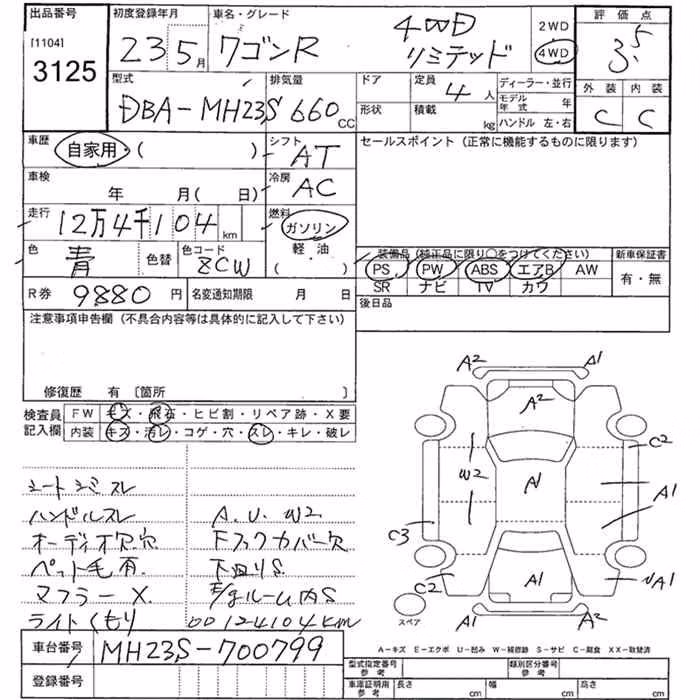 出品番号
[1104]
3125
初度登録年月
23 5月
車名・グレード
ワゴンR 4WD リミテッド
2WD
4WD
評価点
3.5
外装 内装
C C
型式
DBA-MH23S
排気量
660 CC
ドア
形状
定員 4人
積載 kg
ディーラー・並行
モデル年式 年
ハンドル 左・右
車歴
自家用・( )
シフト
AT
セールスポイント (正常に機能するものに限ります)
車検
年 月( 日)
冷房
AC
走行
12万4千104 km
燃料
ガソリン
軽・油
( )
色
青
色替
色コード
ZCW
装備品 (純正品に限り○をつけてください)
PS PW ABS エアB AW
SR ナビ TV カワ
新車保証書
有・無
R券 9880 円
名変通知期限 月 日
後日品
注意事項申告欄 (不具合内容等は具体的に記入して下さい)
修復歴 有 [箇所 ]
検査員
記入欄
FW キズ・飛石・ヒビ割・リペア跡・X要
内装 キズ・汚レ・コゲ・穴・スレ・キレ・破レ
シートシミスレ
ハンドルスレ
オーディオ欠穴
ペット毛有
マフラーX
ライトくもり
A.U W2
Fフックカバー欠
下廻りS
ルーム内S
00124104km
A2 A1
A2
C2
W2
A1
A1
C3
C2
A1
A1
A1 A2
スペア
A-キズ E-エクボ U-凹み W-補修跡 S-サビ C-腐食 X・XX-取替済
車台番号
MH23S-700799
登録番号
型式指定番号
参考
類別区分番号
参考
車庫証明用
参考
長さ cm
幅 cm
高さ cm